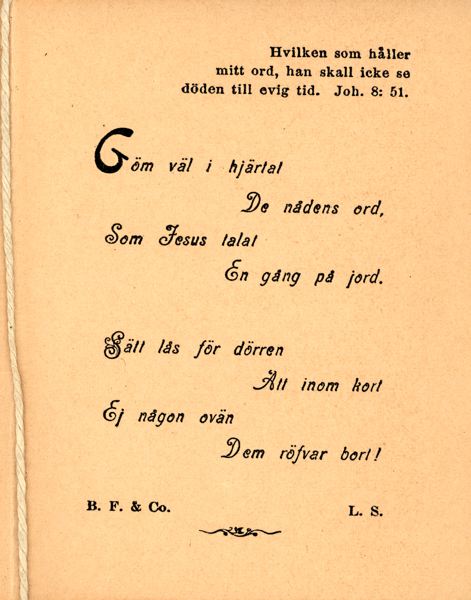 Hvilken som håller
mitt ord, han skall icke se
döden till evig tid. Joh. 8: 51.
Göm väl i hjärtat
De nådens ord,
Som Jesus talat
En gång på jord.
Sätt lås för dörren
Att inom kort
Ej någon ovän
Dem röfvar bort!
B. F. & Co.
L. S.